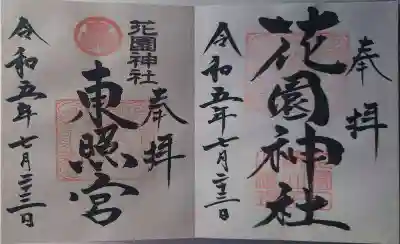 奉拝
花園神社
令和五年七月二十三日
奉拝
花園神社
東照宮
令和五年七月二十三日